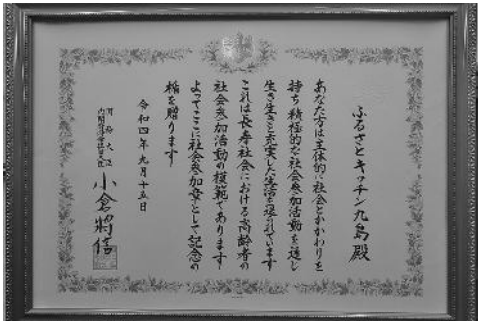 ふるさとキッチン九島殿
あなた方は主体的に社会とかかわりを
持ち積極的な社会参加活動を通じ
生き生きと充実した生活を送られています
これは長寿社会における高齢者の
社会参加活動の模範であります
よってここに社会参加章として記念の
楯を贈ります
令和四年九月十五日
内閣府特命担当大臣
小倉將信